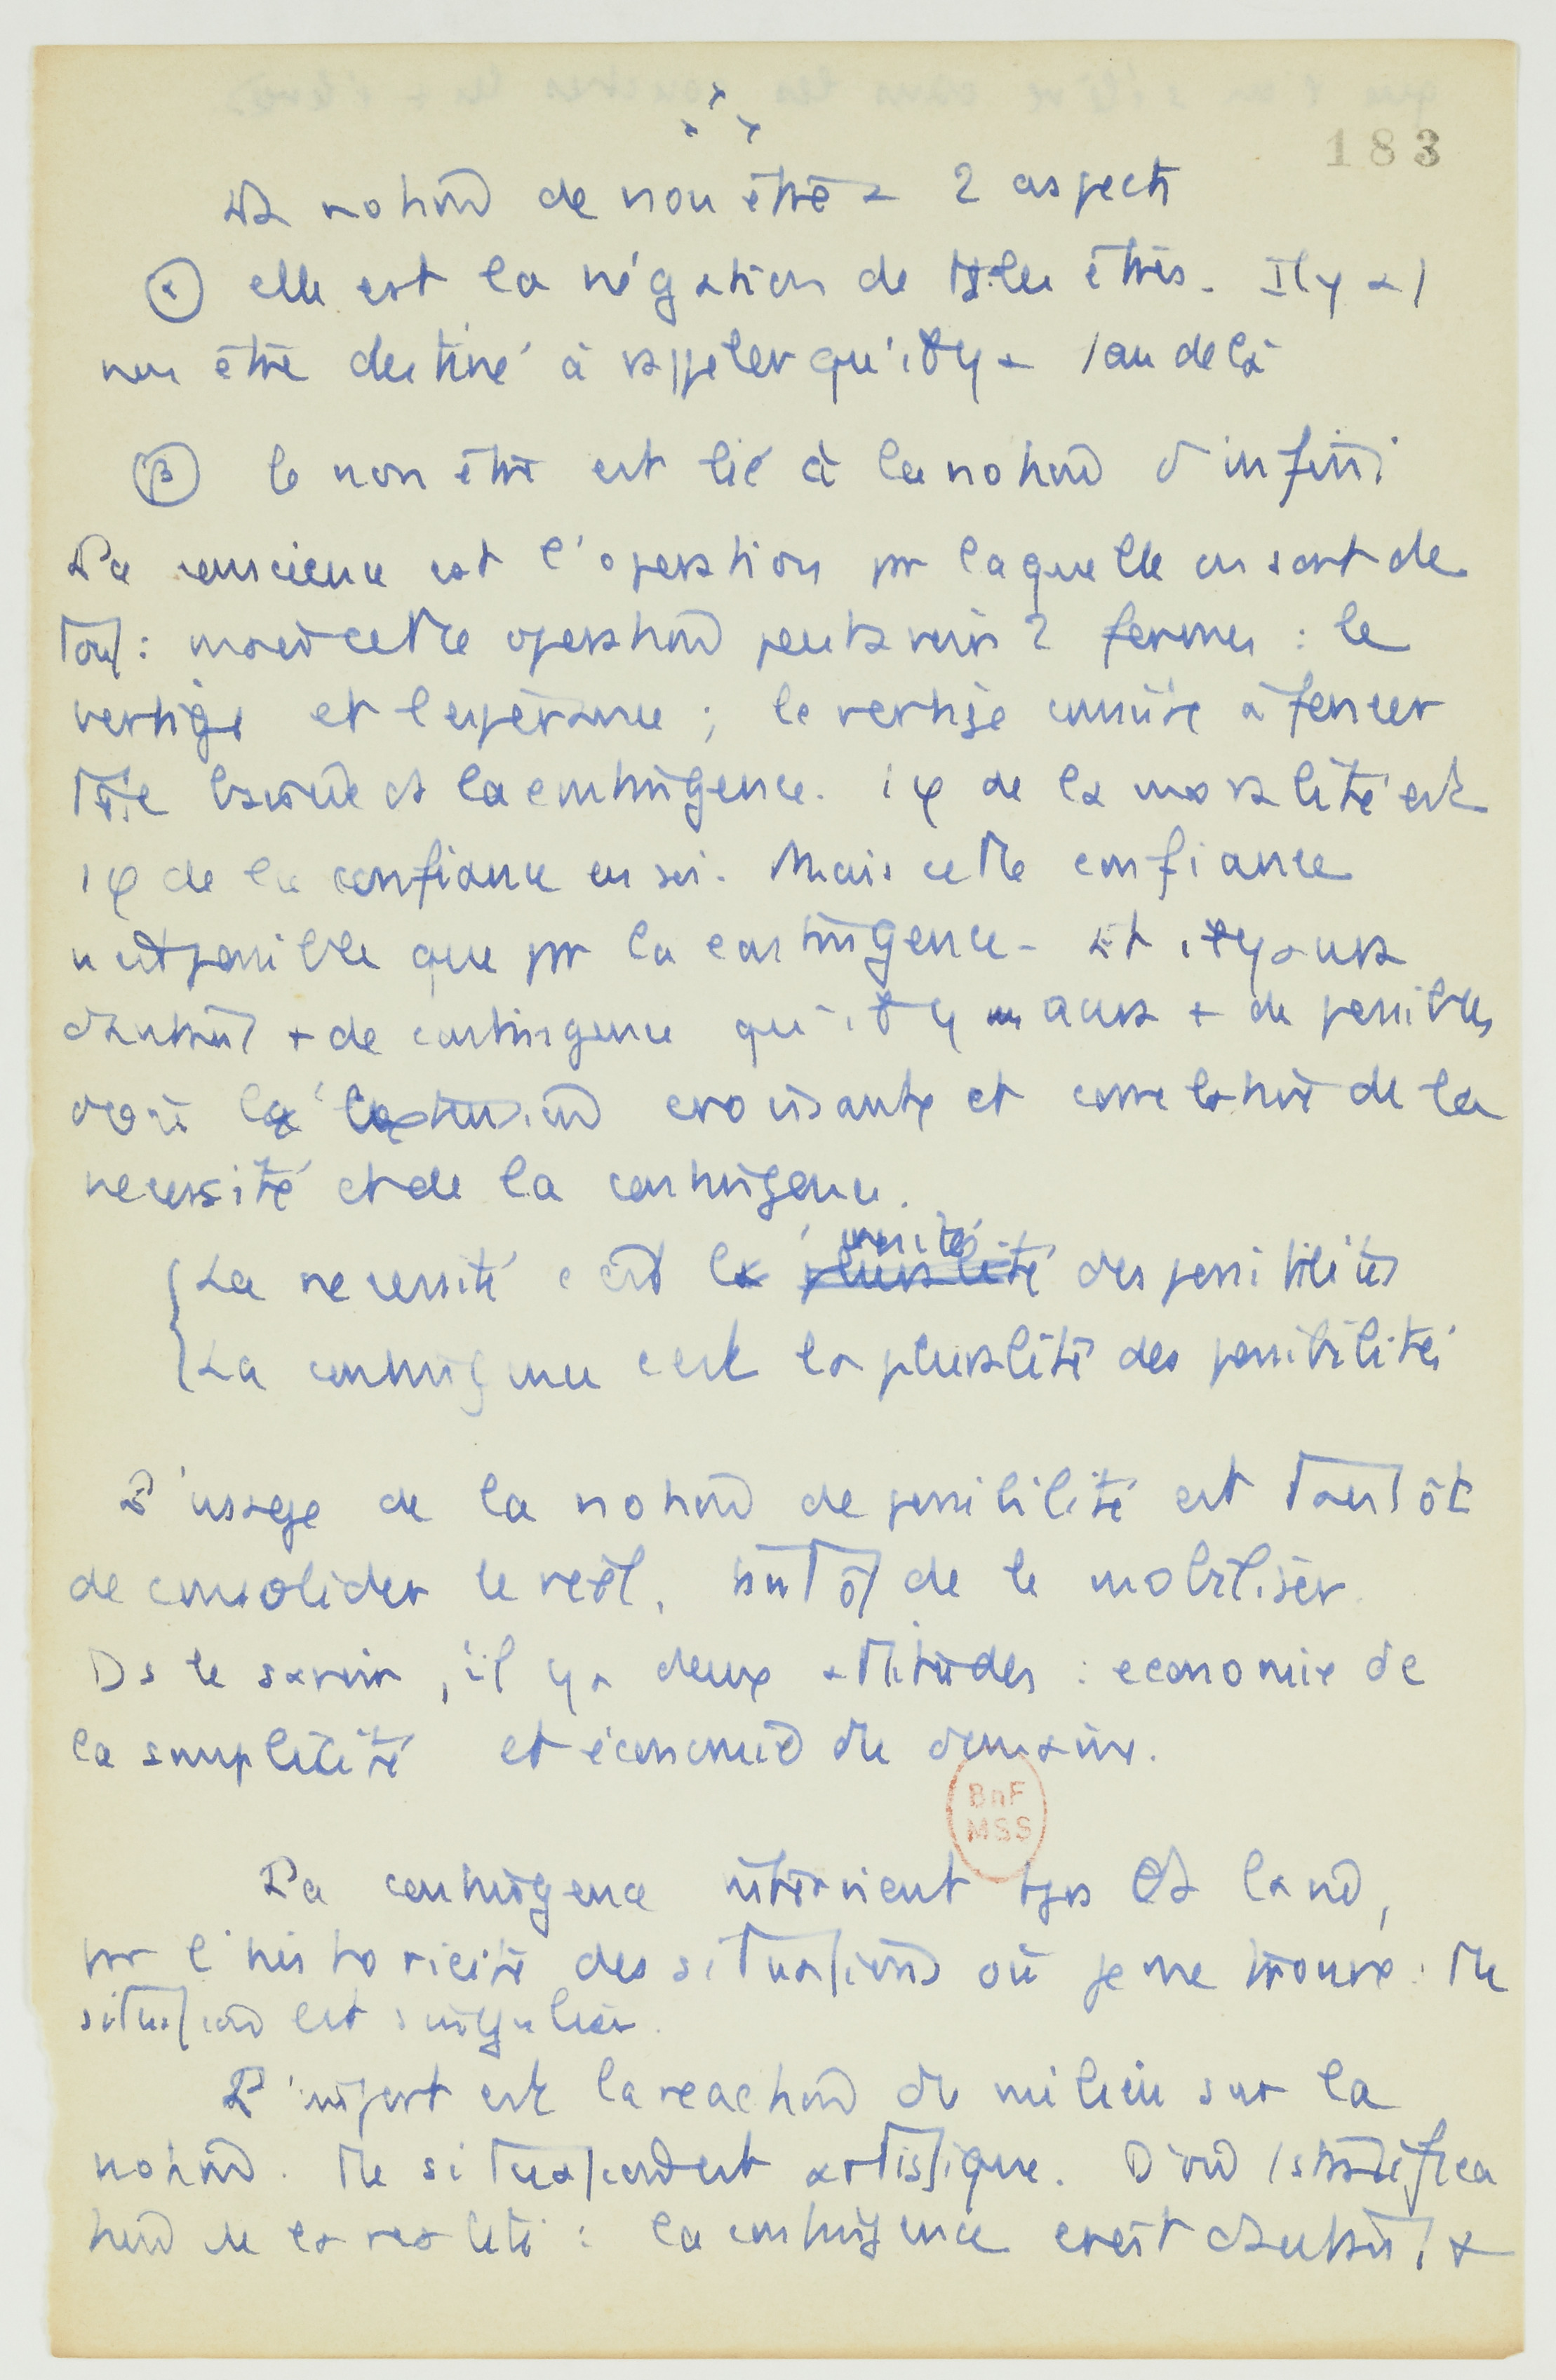 183
La notion de non être a 2 aspects
α elle est la négation de tt les êtres. Il y a 1
non être destiné à rappeler qu'il y a 1 au delà
β le non être est lié à la notion d'infini
La conscience est l'opération par laquelle on sort de
tout : mais cette opération peut avoir 2 formes : le
vertige et l'espérance ; le vertige consiste à
et la contingence. de la moralité est
de la confiance en soi. Mais cette confiance
n'est possible que par la contingence. Et il y aura
d'autant + de contingence qu'il y aura + de possibles
d'où la croissante et corrélative de la
nécessité et de la contingence.
La nécessité c'est l'unité des possibilités
La contingence c'est la pluralité des possibilités
L'usage de la notion de possibilité est tantôt
de consolider le réel, tantôt de le mobiliser.
Ds le savoir, il y a deux attitudes : économie de
la simplicité et économie du domaine.
BnF
MSS
La contingence intervient tjrs ds
par l'historicité des situations où je me trouve. Tte
situation est singulière.
L' est la réaction du milieu sur la
notion. Tte situation est artistique. D'où 1 stratifica
tion de la réalité : la contingence croît d'autant +